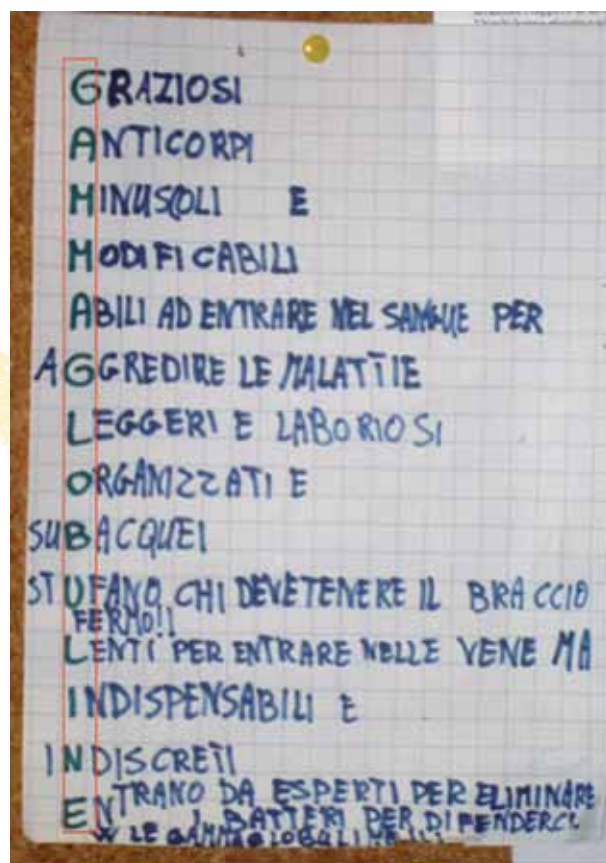 GRAZIOSI
ANTICORPI
MINUSCOLI E
MODIFICABILI
ABILI AD ENTRARE NEL SANGUE PER
AGGREDIRE LE MALATTIE
LEGGERI E LABORIOSI
ORGANIZZATI E
SUBACQUEI
STUFANO CHI DEVE TENERE IL BRACCIO
FERMO!!
LENTI PER ENTRARE NELLE VENE MA
INDISPENSABILI E
INDISCRETI
ENTRANO DA ESPERTI PER ELIMINARE
I BATTERI PER DIFENDERCI
W LE GAMMAGLOBULINE!!!